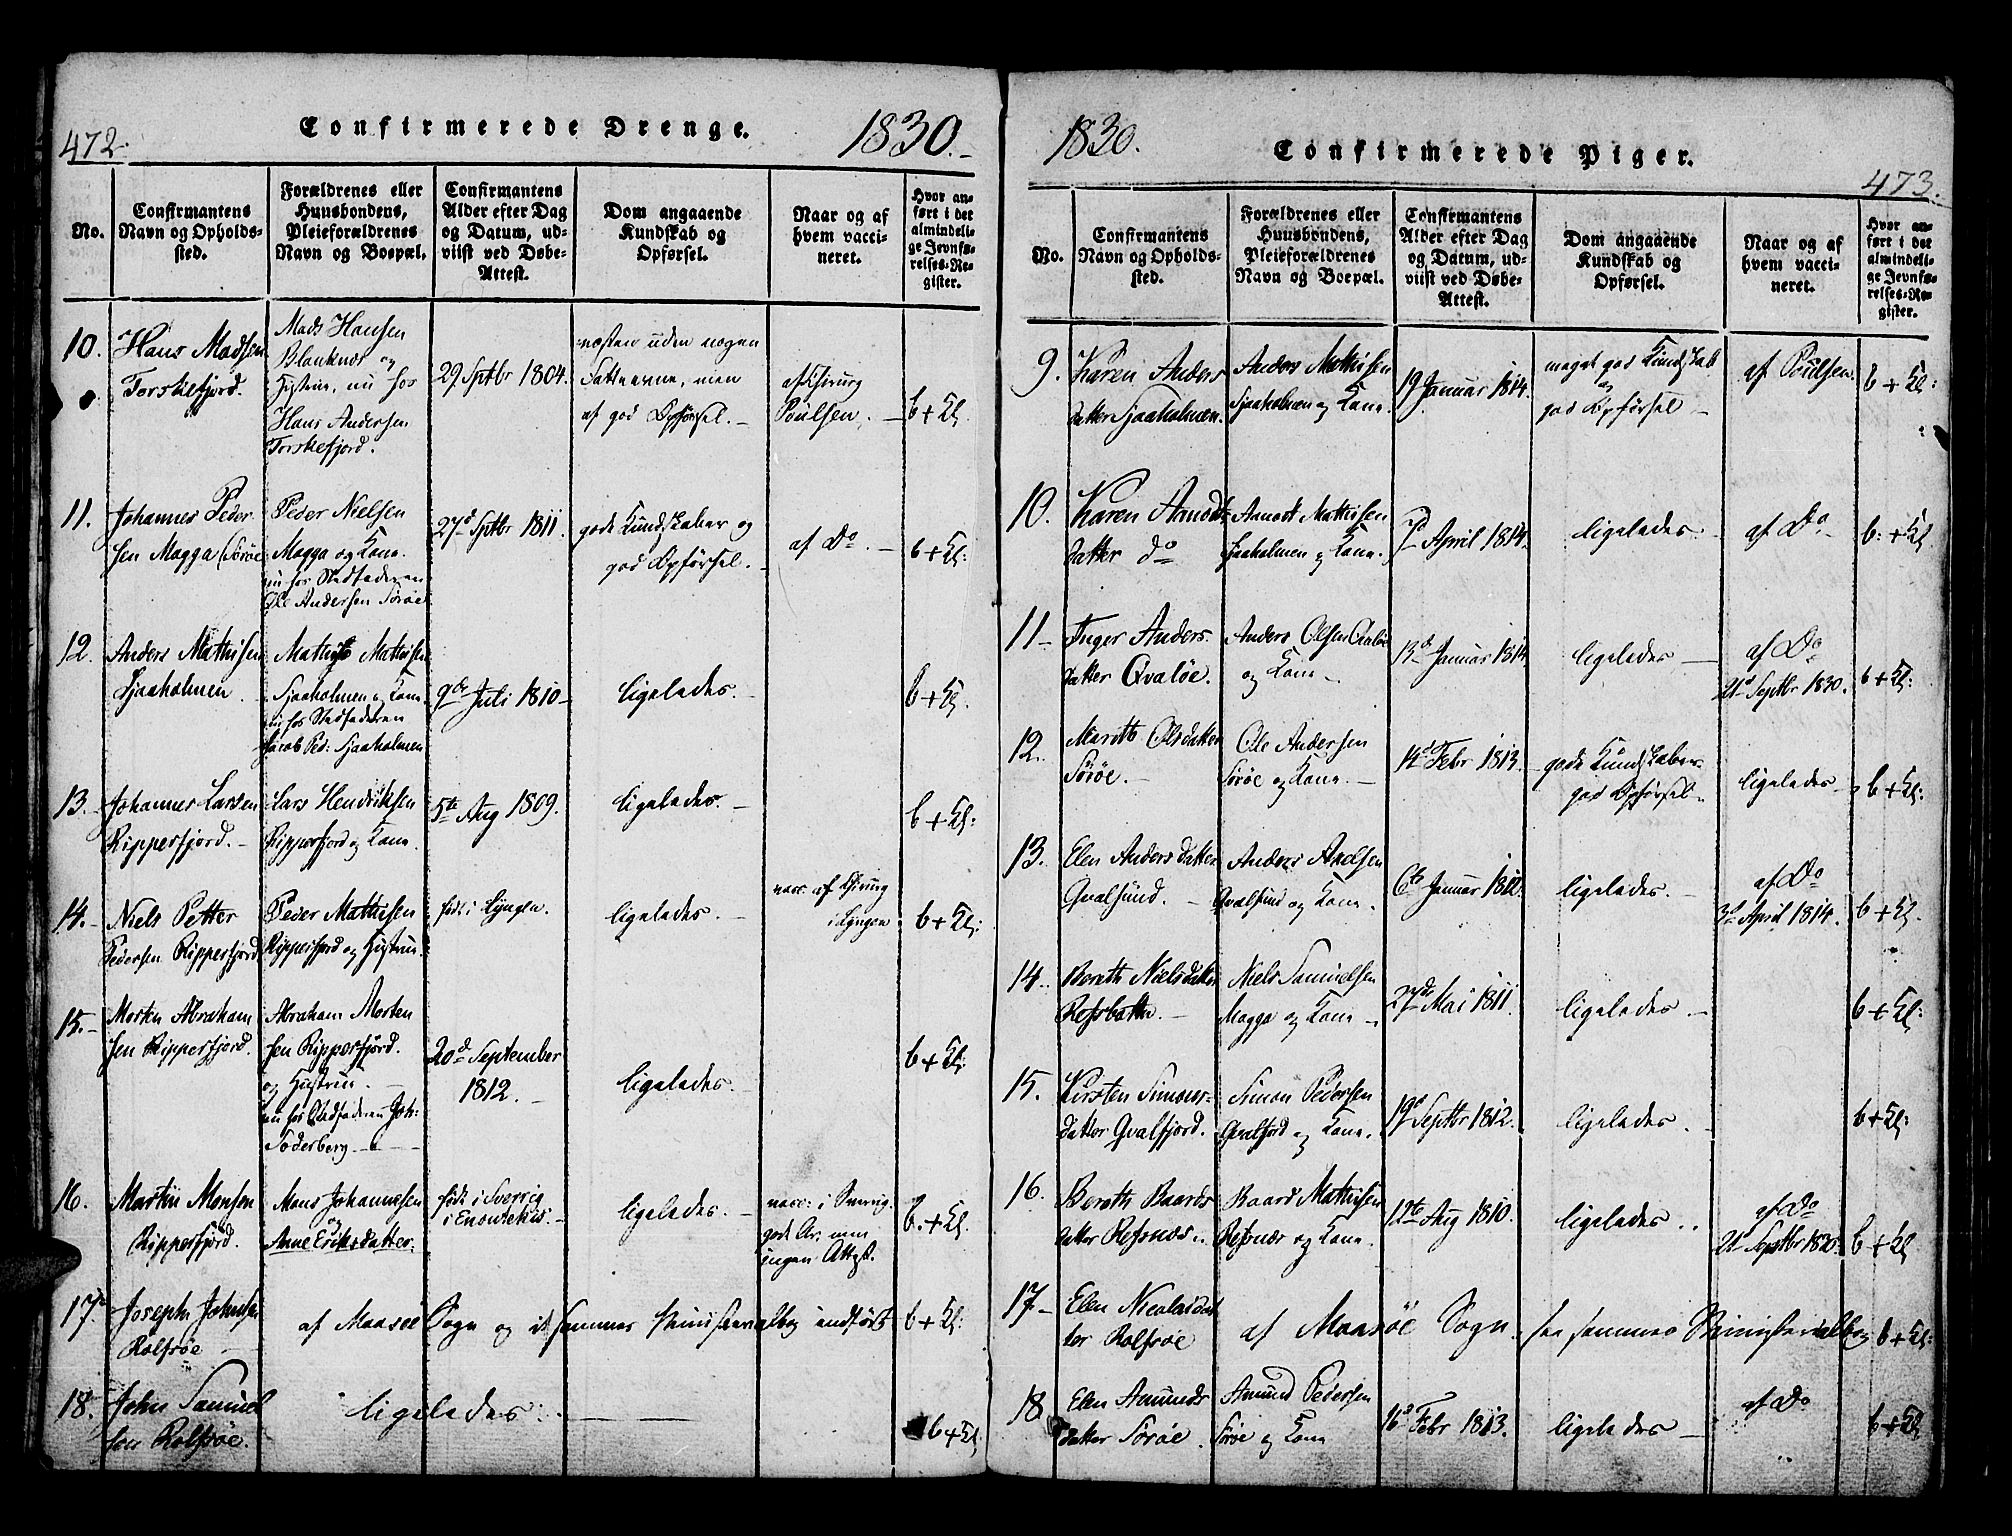 472.
Confirmerede Drenge.
1830.
No.
Confirmantens Navn og Opholds-sted.
Forældrenes eller Huusbondens, Pleieforældrenes Navn og Boepæl.
Confirmantens Alder efter Dag og Datum, ud-viist ved Døbe-Attest.
Dom angaaende Kundskab og Opførsel.
Naar og af hvem vacci-neret.
Hvor an-ført i det almindeli-ge Jevnfø-relses-Re-gister.
10.
Hans Madsen
Torskefjord.
Mads Hansen
og
Hustrue, nu hos
Hans Andersen
Torskefjord.
29 Sptbr 1804.
næsten uden nogen
men
af god Opførsel.
af Chirurg
Poulsen.
b + Kl
11.
Johannes Peder-
sen Magga Sørøe
Peder Nielsen
Magga og Kone
nu hos Stedfaderen
Ole Andersen Sørøe
27d Sptbr 1811.
gode Kundskaber og
god Opførsel.
af Do.
b + Kl:
12.
Anders Mathisen
Sjaaholmen
Mathis Mathisen
Sjaaholmen og Kone
nu hos Stedfaderen
Jacob Ped: Sjaaholmen
9de Juli 1810
ligelades.
b + Kl.
13.
Johannes Larsen
Ripperfjord.
Lars Hendriksen
Ripperfjord og Kone.
5te Aug 1809.
ligelades.
b + Kl:
14.
Niels Petter
Pedersen Ripperfjord
Peder Mathisen
Ripperfjord og Hustrue.
født i Lyngen.
ligelades.
vacc: af Chirurg
i Lyngen
b + Kl:
15.
Morten Abraham
sen Ripperfjord.
Abraham Morten
sen Ripperfjord.
og Hustrue.
nu hos Stedfaderen Joh:
Soderberg
20d September
1812.
ligelades.
b + Kl:
16.
Martin Monsen
Ripperfjord.
Mons Johannesen
og
Anne Eriksdatter.
født i Sverrig
i Enontekis.
ligelades.
vacc: i Sverrig
men
ingen Attest.
b. + Kl.
17.
Joseph Johnsen
Rolfsøe
af Maasøe Sogn og i sammes Ministerialbog indført
b + Kl:
18.
John Samuel
sen Rolfsøe.
ligelades
b + Kl.
1830.
Confirmerede Piger.
473.
No.
Confirmantens Navn og Opholds-sted.
Forældrenes eller Huusbondens, Pleieforældrenes Navn og Boepæl.
Confirmantens Alder efter Dag og Datum, ud-viist ved Døbe-Attest.
Dom angaaende Kundskab og Opførsel.
Naar og af hvem vacci-neret.
Hvor an-ført i det almindeli-ge Jevnfø-relses-Re-gister.
9.
Karen Anders
datter Sjaaholmen.
Anders Mathisen
Sjaaholmen og Kone.
19 Januar 1814.
meget god Kundskab
og
god Opførsel
af Poulsen.
b + Kl:
10.
Karen Arnodt-
datter do
Arnodt Mathisen
Sjaaholmen og Kone.
7d April 1814.
ligelades.
af Do
b: + Kl
11
Inger Anders-
datter Qvaløe.
Anders Olsen Qvaløe
og Kone
13d Januar 1814
ligelades
af Do
21d Septbr 1830.
b + Kl:
12.
Marith Olsdatter
Sørøe.
Ole Andersen
Sørøe og Kone.
14d Febr 1813.
gode Kundskaber
god Opførsel.
ligelades.
b + Kl:
13.
Elen Andersdatter
Qvalsund.
Anders Axelsen
Qvalsund og Kone.
6te Januar 1812.
ligelades.
af Do
3d April 1814.
b + Kl.
14.
Bereth Nielsdatter
Refsbotten.
Niels Samuelsen
Magga og Kone
27de Mai 1811.
ligelades
b + Kl:
15.
Kirsten Simons-
datter Qvalfjord.
Simon Pedersen
Qvalfjord og Kone.
19d Septbr 1812.
ligelades.
b + Kl:
16.
Bereth Baards
datter Refsnæs.
Baard Mathisen
Refsnæs og Kone.
12te Aug 1810.
ligelades
af Do
21 Septbr 1830.
b + Kl
17
Elen Nicolaidat
ter Rolfsøe
af Maasøe Sogn. see sammes Ministerialbog
b + Kl:
18
Elen Amunds
datter Sørøe.
Amund Pedersen
Sørøe og Kone
16d Febr 1813.
ligelades
af Do
b + Kl